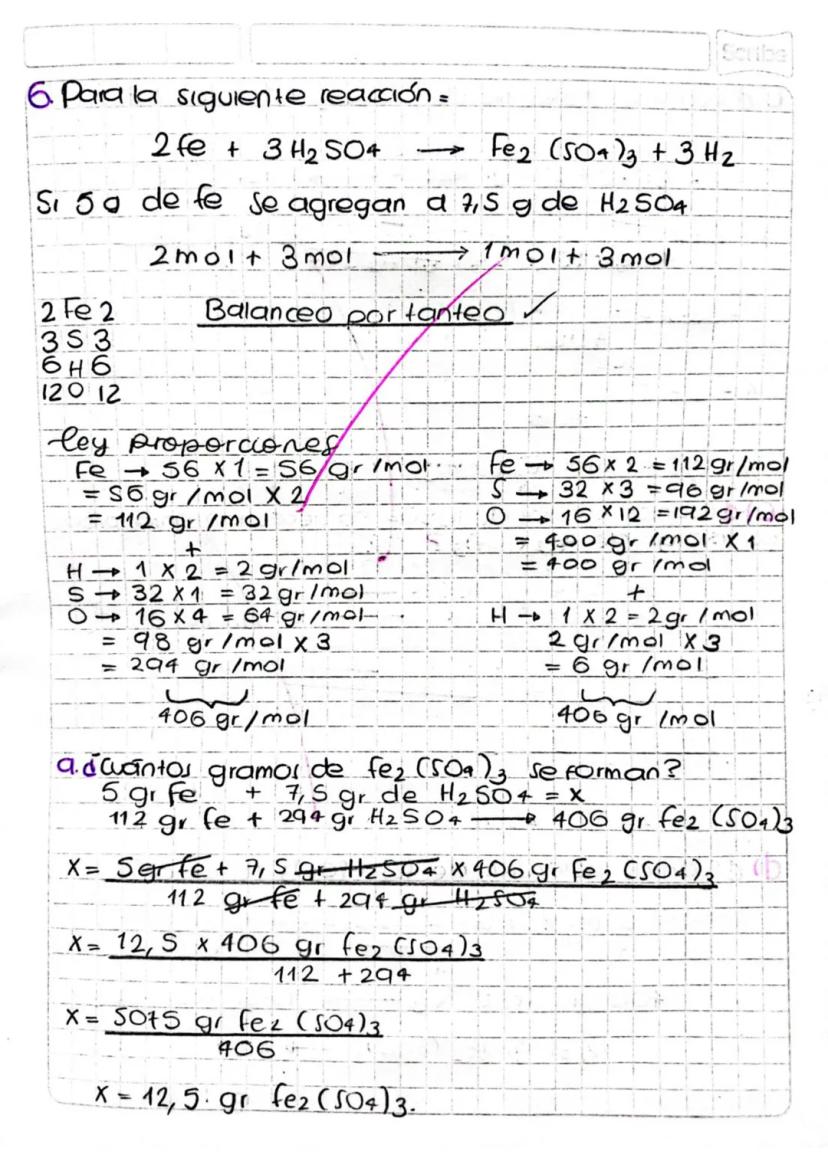 Scribe
6. Para la siguiente reacción =
2 fe + 3 H2 SO4 → Fe2 (SO4)3 + 3 H2
Si 5 g de fe se agregan a 7,5 g de H2 SO4
2 mol + 3 mol → 1 mol + 3 mol
2 Fe 2 Balanceo por tanteo ✓
3 S 3
6 H 6
12 O 12
ley proporciones
Fe → 56 X 1 = 56 gr /mol
= 56 gr / mol X 2
= 112 gr /mol
+
H → 1 X 2 = 2 gr/mol
S → 32 X1 = 32 gr/mol
O → 16 X 4 = 64 gr/mol
= 98 gr /mol x 3
= 294 gr /mol
406 gr/mol
Fe → 56 X 2 = 112 gr/mol
S → 32 X 3 = 96 gr/mol
O → 16 X 12 = 192 gr/mol
= 400 gr /mol X 1
= 400 gr /mol
+
H → 1 X 2 = 2 gr / mol
2 gr/mol X 3
= 6 gr /mol
406 gr /mol
a. ¿Cuántos gramos de fe2 (SO4)3 se forman?
5 gr Fe + 7,5 gr de H2 SO4 = x
112 gr fe + 294 gr H2 SO4 → 406 gr fe2 (SO4)3
X = 5 gr fe + 7,5 gr H2SO4 x 406 gr Fe2 (SO4)3
112 gr fe + 294 gr H2SO4
X = 12,5 x 406 gr fe2 (SO4)3
112 + 294
X = 5075 gr fe2 (SO4)3
406
X = 12,5 gr fe2 (SO4)3.